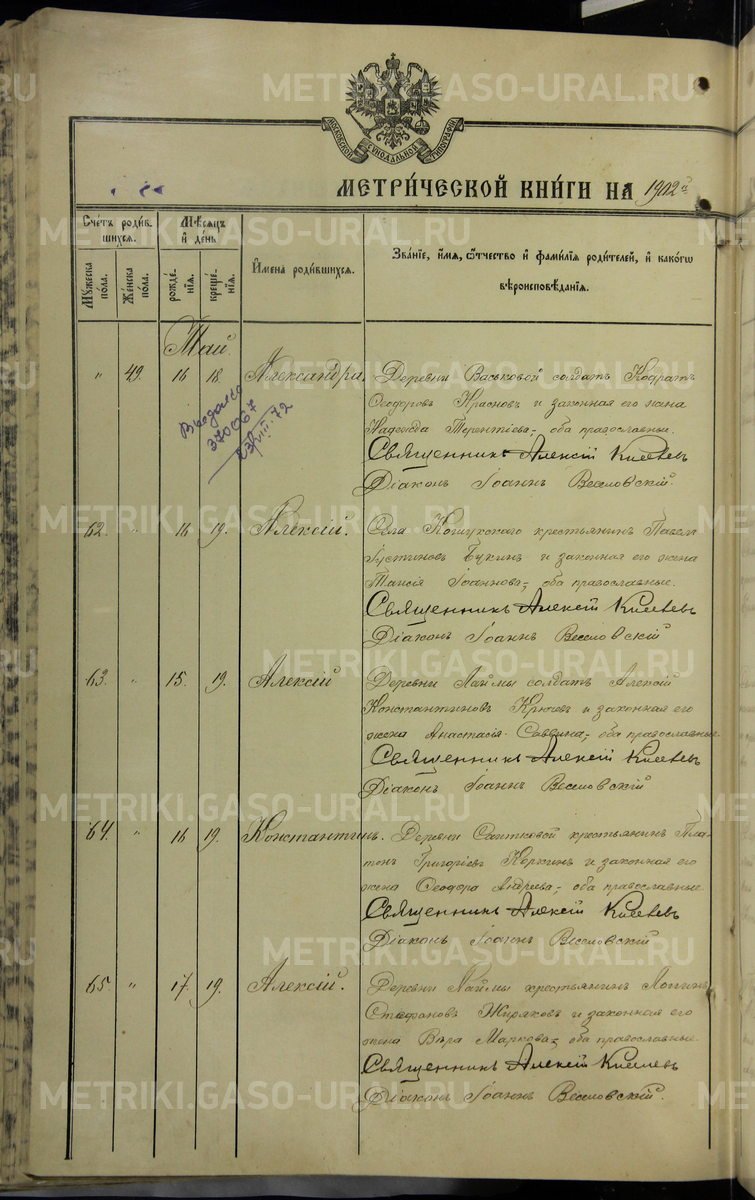 МОСКОВСКОЙ СѴНОДАЛЬНОЙ ТИПОГРАФІИ
МЕТРИ́ЧЕСКОЙ КНИ́ГИ НА 1902й
Сче́тъ роди́в-
шихся.
Му́жеска
по́ла.
Же́нска
по́ла.
Мѣ́сяцъ
и́ де́нь
рожде́-
нія.
креще́-
нія.
И́мена роди́вшихся.
Зва́ніе, и́мя, ѻ́тчество и́ фами́лія роди́телей, и́ како́гѡ
вѣроисповѣ́данія.
Май.
" 49. 16 18. Александра,
Деревни Васьковой солдатъ Кодратъ
Ѳеодоровъ Красновъ и законная его жена
Надежда Терентіева, оба православны.
Священникъ Алексій Киселевъ
Діаконъ Іоаннъ Веселовскій.
Выдано
370067
23/VIII-72
62. " 16 19. Алексій.
Села Кошукскаго крестьянинъ Павелъ
Іустиновъ Букинъ и законная его жена
Таисія Іоаннова, оба православные.
Священникъ Алексій Киселевъ
Діаконъ Іоаннъ Веселовскій
63. " 15. 19. Алексій
Деревни Наймы солдатъ Алексій
Константиновъ Крючевъ и законная его
жена Анастасія Саввина, оба православные
Священникъ Алексій Киселевъ
Діаконъ Іоаннъ Веселовскій
64. " 16 19. Константинъ.
Деревни Саитковой крестьянинъ Пла-
тонъ Григоріевъ Коркинъ и законная его
жена Ѳеодора Андреева, оба православные
Священникъ Алексій Киселевъ
Діаконъ Іоаннъ Веселовскій
65. " 17. 19. Алексій.
Деревни Наймы крестьянинъ Логинъ
Стефановъ Жиряковъ и законная его
жена Вѣра Маркова, оба православные.
Священникъ Алексій Киселевъ
Діаконъ Іоаннъ Веселовскій.
METRIKI.GASO-URAL.RU